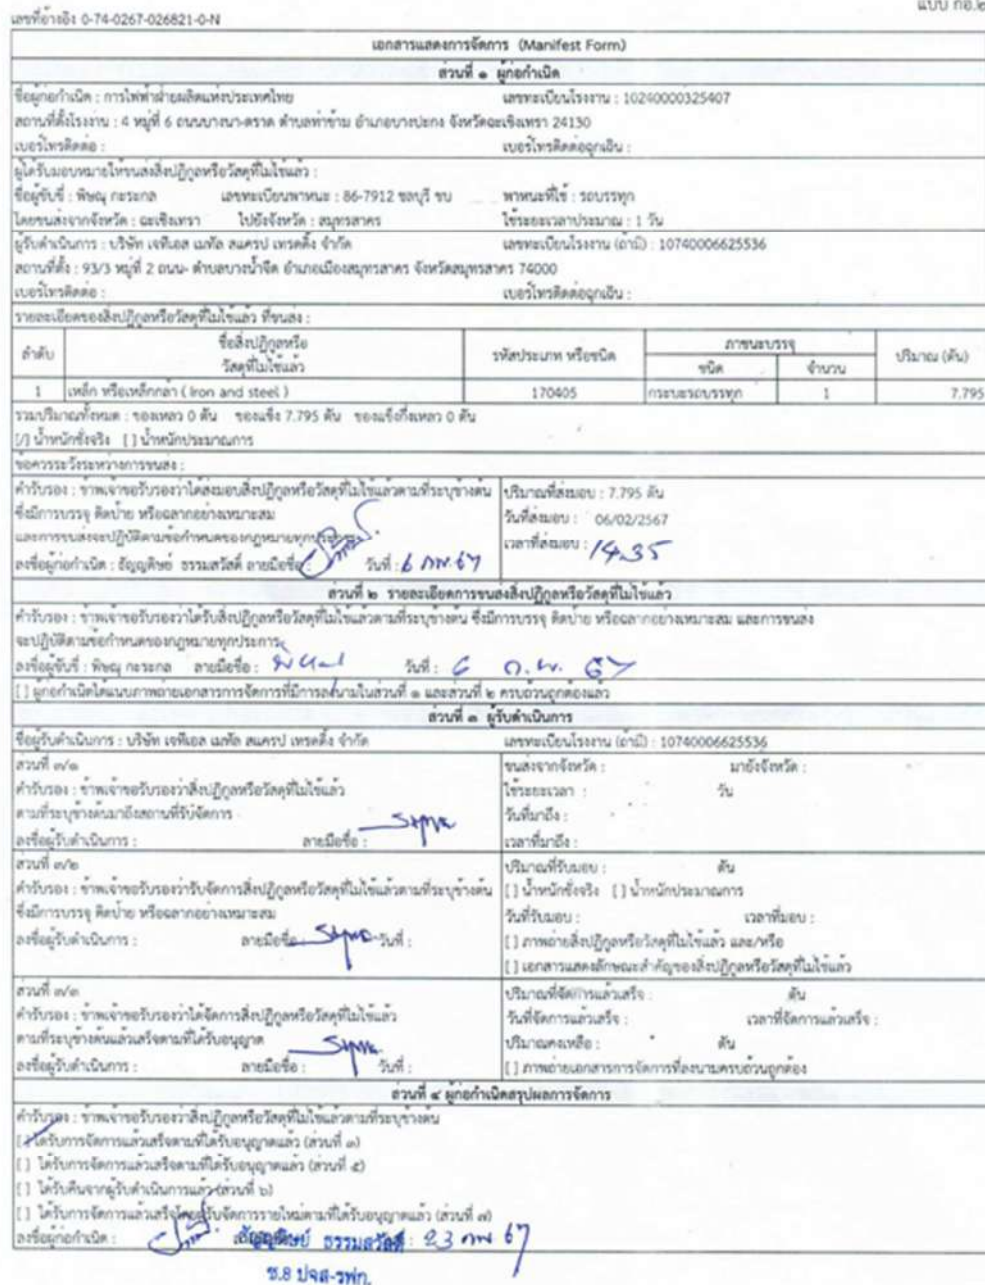 แบบ กอ.๒
เลขที่อ้างอิง 0-74-0267-026821-0-N
เอกสารแสดงการจัดการ (Manifest Form)
ส่วนที่ ๑ ผู้ก่อกำเนิด
ชื่อผู้ก่อกำเนิด : การไฟฟ้าฝ่ายผลิตแห่งประเทศไทย เลขทะเบียนโรงงาน : 10240000325407
สถานที่ตั้งโรงงาน : 4 หมู่ที่ 6 ถนนบางนา-ตราด ตำบลท่าข้าม อำเภอบางปะกง จังหวัดฉะเชิงเทรา 24130
เบอร์โทรติดต่อ : เบอร์โทรติดต่อฉุกเฉิน :
ผู้ได้รับมอบหมายให้ขนส่งสิ่งปฏิกูลหรือวัสดุที่ไม่ใช้แล้ว :
ชื่อผู้ขับขี่ : พิษณุ กะระกล เลขทะเบียนพาหนะ : 86-7912 ชลบุรี ชบ พาหนะที่ใช้ : รถบรรทุก
โดยขนส่งจากจังหวัด : ฉะเชิงเทรา ไปยังจังหวัด : สมุทรสาคร ใช้ระยะเวลาประมาณ : 1 วัน
ผู้รับดำเนินการ : บริษัท เจทีเอส เมทัล สแครป เทรดดิ้ง จำกัด เลขทะเบียนโรงงาน (ถ้ามี) : 10740006625536
สถานที่ตั้ง : 93/3 หมู่ที่ 2 ถนน- ตำบลบางน้ำจืด อำเภอเมืองสมุทรสาคร จังหวัดสมุทรสาคร 74000
เบอร์โทรติดต่อ : เบอร์โทรติดต่อฉุกเฉิน :
รายละเอียดของสิ่งปฏิกูลหรือวัสดุที่ไม่ใช้แล้ว ที่ขนส่ง :
ลำดับ ชื่อสิ่งปฏิกูลหรือวัสดุที่ไม่ใช้แล้ว รหัสประเภท หรือชนิด ภาชนะบรรจุ ชนิด จำนวน ปริมาณ (ตัน)
1 เหล็ก หรือเหล็กกล้า ( Iron and steel ) 170405 กระบะรถบรรทุก 1 7.795
รวมปริมาณทั้งหมด : ของเหลว 0 ตัน ของแข็ง 7.795 ตัน ของแข็งกึ่งเหลว 0 ตัน
[/] น้ำหนักชั่งจริง [ ] น้ำหนักประมาณการ
ข้อควรระวังระหว่างการขนส่ง :
คำรับรอง : ข้าพเจ้าขอรับรองว่าได้ส่งมอบสิ่งปฏิกูลหรือวัสดุที่ไม่ใช้แล้วตามที่ระบุข้างต้น ปริมาณที่ส่งมอบ : 7.795 ตัน
ซึ่งมีการบรรจุ ติดป้าย หรือฉลากอย่างเหมาะสม วันที่ส่งมอบ : 06/02/2567
และการขนส่งจะปฏิบัติตามข้อกำหนดของกฎหมายทุกประการ เวลาที่ส่งมอบ : 14.35
ลงชื่อผู้ก่อกำเนิด : ธัญญศิษย์ ธรรมสวัสดิ์ ลายมือชื่อ : วันที่ : 6 กพ. 67
ส่วนที่ ๒ รายละเอียดการขนส่งสิ่งปฏิกูลหรือวัสดุที่ไม่ใช้แล้ว
คำรับรอง : ข้าพเจ้าขอรับรองว่าได้รับสิ่งปฏิกูลหรือวัสดุที่ไม่ใช้แล้วตามที่ระบุข้างต้น ซึ่งมีการบรรจุ ติดป้าย หรือฉลากอย่างเหมาะสม และการขนส่ง
จะปฏิบัติตามข้อกำหนดของกฎหมายทุกประการ
ลงชื่อผู้ขับขี่ : พิษณุ กะระกล ลายมือชื่อ : วันที่ : 6 ก.พ. 67
[ ] ผู้ก่อกำเนิดได้แนบภาพถ่ายเอกสารการจัดการที่มีการลงนามในส่วนที่ ๑ และส่วนที่ ๒ ครบถ้วนถูกต้องแล้ว
ส่วนที่ ๓ ผู้รับดำเนินการ
ชื่อผู้รับดำเนินการ : บริษัท เจทีเอส เมทัล สแครป เทรดดิ้ง จำกัด เลขทะเบียนโรงงาน (ถ้ามี) : 10740006625536
ส่วนที่ ๓/๑ ขนส่งจากจังหวัด : มายังจังหวัด :
คำรับรอง : ข้าพเจ้าขอรับรองว่าสิ่งปฏิกูลหรือวัสดุที่ไม่ใช้แล้ว ใช้ระยะเวลา : วัน
ตามที่ระบุข้างต้นมาถึงสถานที่รับจัดการ วันที่มาถึง :
ลงชื่อผู้รับดำเนินการ : ลายมือชื่อ : เวลาที่มาถึง :
ส่วนที่ ๓/๒ ปริมาณที่รับมอบ : ตัน
คำรับรอง : ข้าพเจ้าขอรับรองว่ารับจัดการสิ่งปฏิกูลหรือวัสดุที่ไม่ใช้แล้วตามที่ระบุข้างต้น [ ] น้ำหนักชั่งจริง [ ] น้ำหนักประมาณการ
ซึ่งมีการบรรจุ ติดป้าย หรือฉลากอย่างเหมาะสม วันที่รับมอบ : เวลาที่มอบ :
ลงชื่อผู้รับดำเนินการ : ลายมือชื่อ : วันที่ : [ ] ภาพถ่ายสิ่งปฏิกูลหรือวัสดุที่ไม่ใช้แล้ว และ/หรือ
[ ] เอกสารแสดงลักษณะสำคัญของสิ่งปฏิกูลหรือวัสดุที่ไม่ใช้แล้ว
ส่วนที่ ๓/๓ ปริมาณที่จัดการแล้วเสร็จ : ตัน
คำรับรอง : ข้าพเจ้าขอรับรองว่าได้จัดการสิ่งปฏิกูลหรือวัสดุที่ไม่ใช้แล้ว วันที่จัดการแล้วเสร็จ : เวลาที่จัดการแล้วเสร็จ :
ตามที่ระบุข้างต้นแล้วเสร็จตามที่ได้รับอนุญาต ปริมาณคงเหลือ : ตัน
ลงชื่อผู้รับดำเนินการ : ลายมือชื่อ : วันที่ : [ ] ภาพถ่ายเอกสารการจัดการที่ลงนามครบถ้วนถูกต้อง
ส่วนที่ ๔ ผู้ก่อกำเนิดสรุปผลการจัดการ
คำรับรอง : ข้าพเจ้าขอรับรองว่าสิ่งปฏิกูลหรือวัสดุที่ไม่ใช้แล้วตามที่ระบุข้างต้น
[/] ได้รับการจัดการแล้วเสร็จตามที่ได้รับอนุญาตแล้ว (ส่วนที่ ๓)
[ ] ได้รับการจัดการแล้วเสร็จตามที่ได้รับอนุญาตแล้ว (ส่วนที่ ๕)
[ ] ได้รับคืนจากผู้รับดำเนินการแล้ว (ส่วนที่ ๖)
[ ] ได้รับการจัดการแล้วเสร็จโดยผู้รับจัดการรายใหม่ตามที่ได้รับอนุญาตแล้ว (ส่วนที่ ๗)
ลงชื่อผู้ก่อกำเนิด : ธัญญศิษย์ ธรรมสวัสดิ์ : 23 กพ 67
ช.8 ปจส-รฟก.